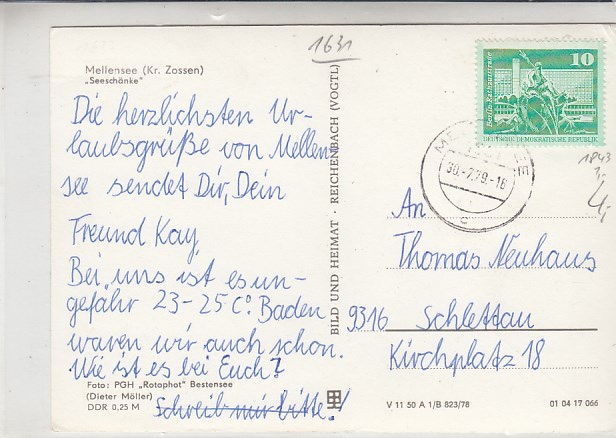 1631
Mellensee (Kr. Zossen)
„Seeschänke"
Die herzlichsten Ur-
laubsgrüße von Mellen
see sendet Dir, Dein
Freund Kay
Bei uns ist es un-
gefähr 23-25 C°. Baden
waren wir auch schon.
Wie ist es bei Euch?
Schreib mir bitte!
Foto: PGH „Rotophot" Bestensee
(Dieter Möller)
DDR 0,25 M
BILD UND HEIMAT · REICHENBACH (VOGTL)
10
Berlin, Rathausstraße
DEUTSCHE DEMOKRATISCHE REPUBLIK
30.-7.79.-16
c
1843
4,-
An
Thomas Neuhaus
9316 Schlettau
Kirchplatz 18
V 11 50 A 1/B 823/78
01 04 17 066